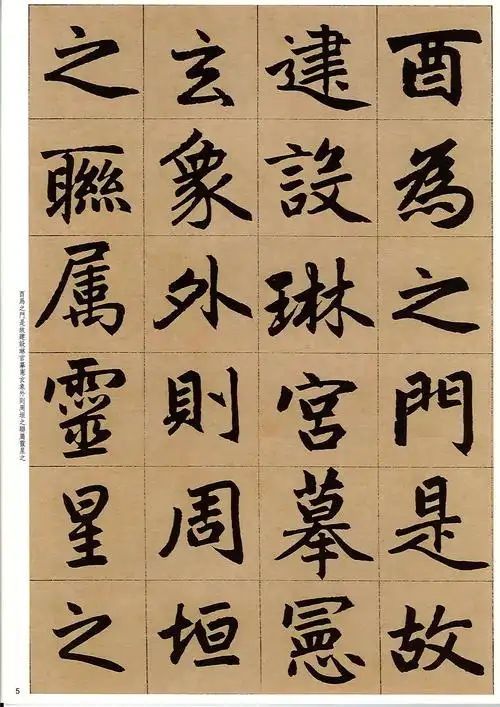 酉為之門是故
建設琳宮摹憲
玄象外則周垣
之聯属靈星之
酉爲之門是故建設琳宮摹憲玄象外則周垣之聯屬靈星之
5